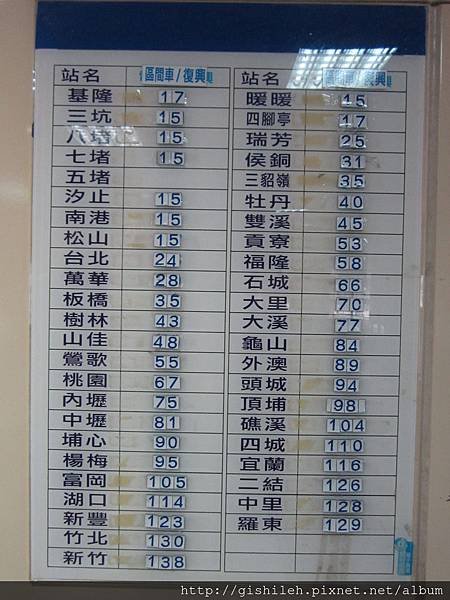 站名 區間車/復興
基隆 17
三坑 15
八堵 15
七堵 15
五堵
汐止 15
南港 15
松山 15
台北 24
萬華 28
板橋 35
樹林 43
山佳 48
鶯歌 55
桃園 67
內壢 75
中壢 81
埔心 90
楊梅 95
富岡 105
湖口 114
新豐 123
竹北 130
新竹 138
站名 區間車/復興
暖暖 45
四腳亭 17
瑞芳 25
侯銅 31
三貂嶺 35
牡丹 40
雙溪 45
貢寮 53
福隆 58
石城 66
大里 70
大溪 77
龜山 84
外澳 89
頭城 94
頂埔 98
礁溪 104
四城 110
宜蘭 116
二結 126
中里 128
羅東 129
http://gishileh.pixnet.net/album